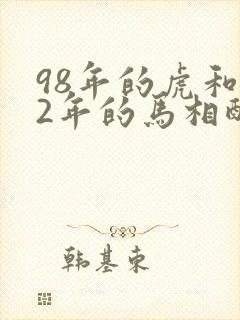 98年的虎和
2年的馬相配
韩基东